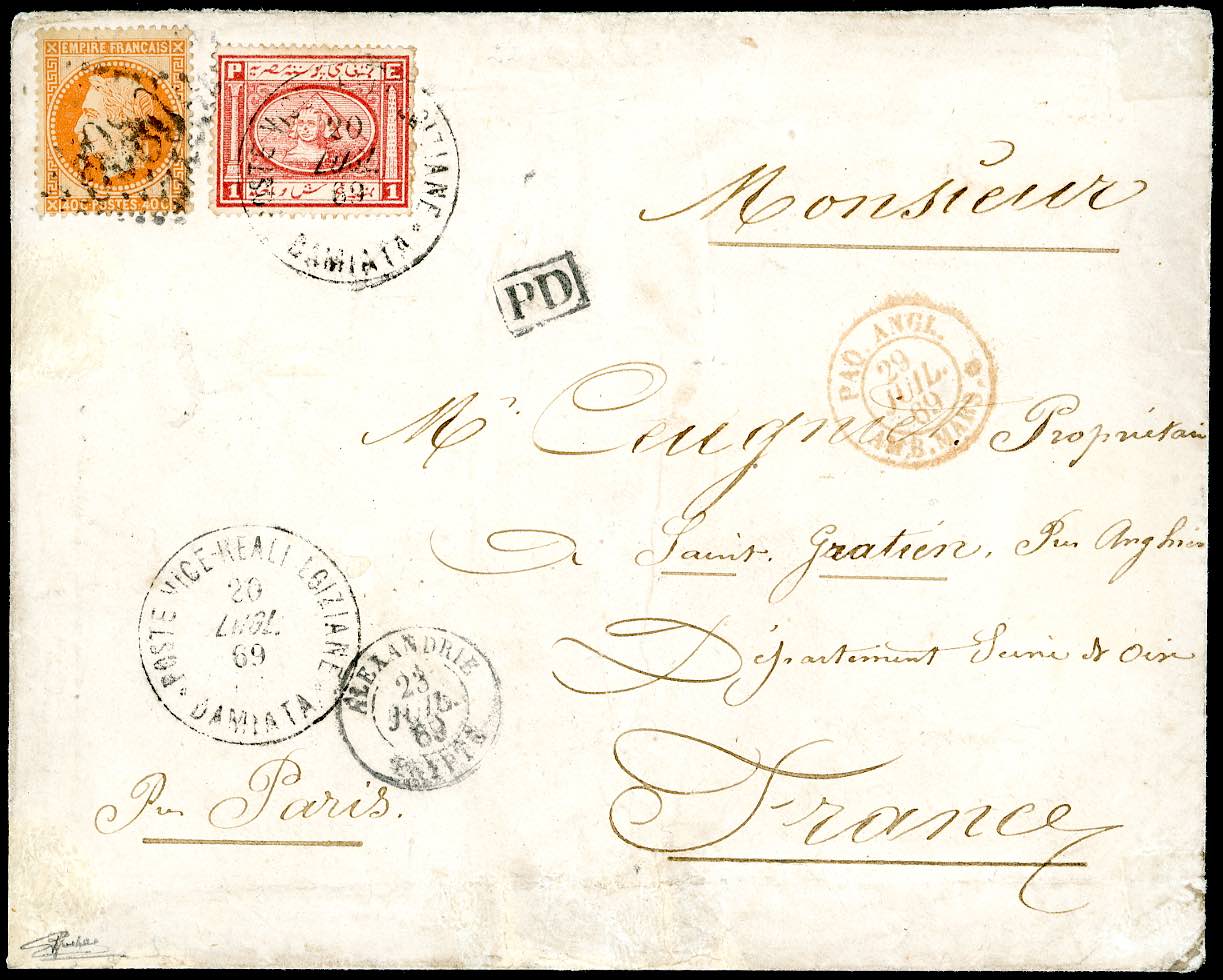 EMPIRE FRANCAIS
40C POSTES 40C
P E
1 1
POSTE VICE-REALI EGIZIANE
20
LUGL.
69
DAMIATA
Monsieur
PD
PAQ. ANGL.
29
JUIL.
69
AM. B. MARS.
Mr Ceugniet. Propriétair
A Saint. Gratien, Près Anghien
Département Seine & Oise
POSTE VICE-REALI EGIZIANE
20
LUGL.
69
DAMIATA
ALEXANDRIE
23
JUIL.
69
EGYPTE
Près Paris.
France